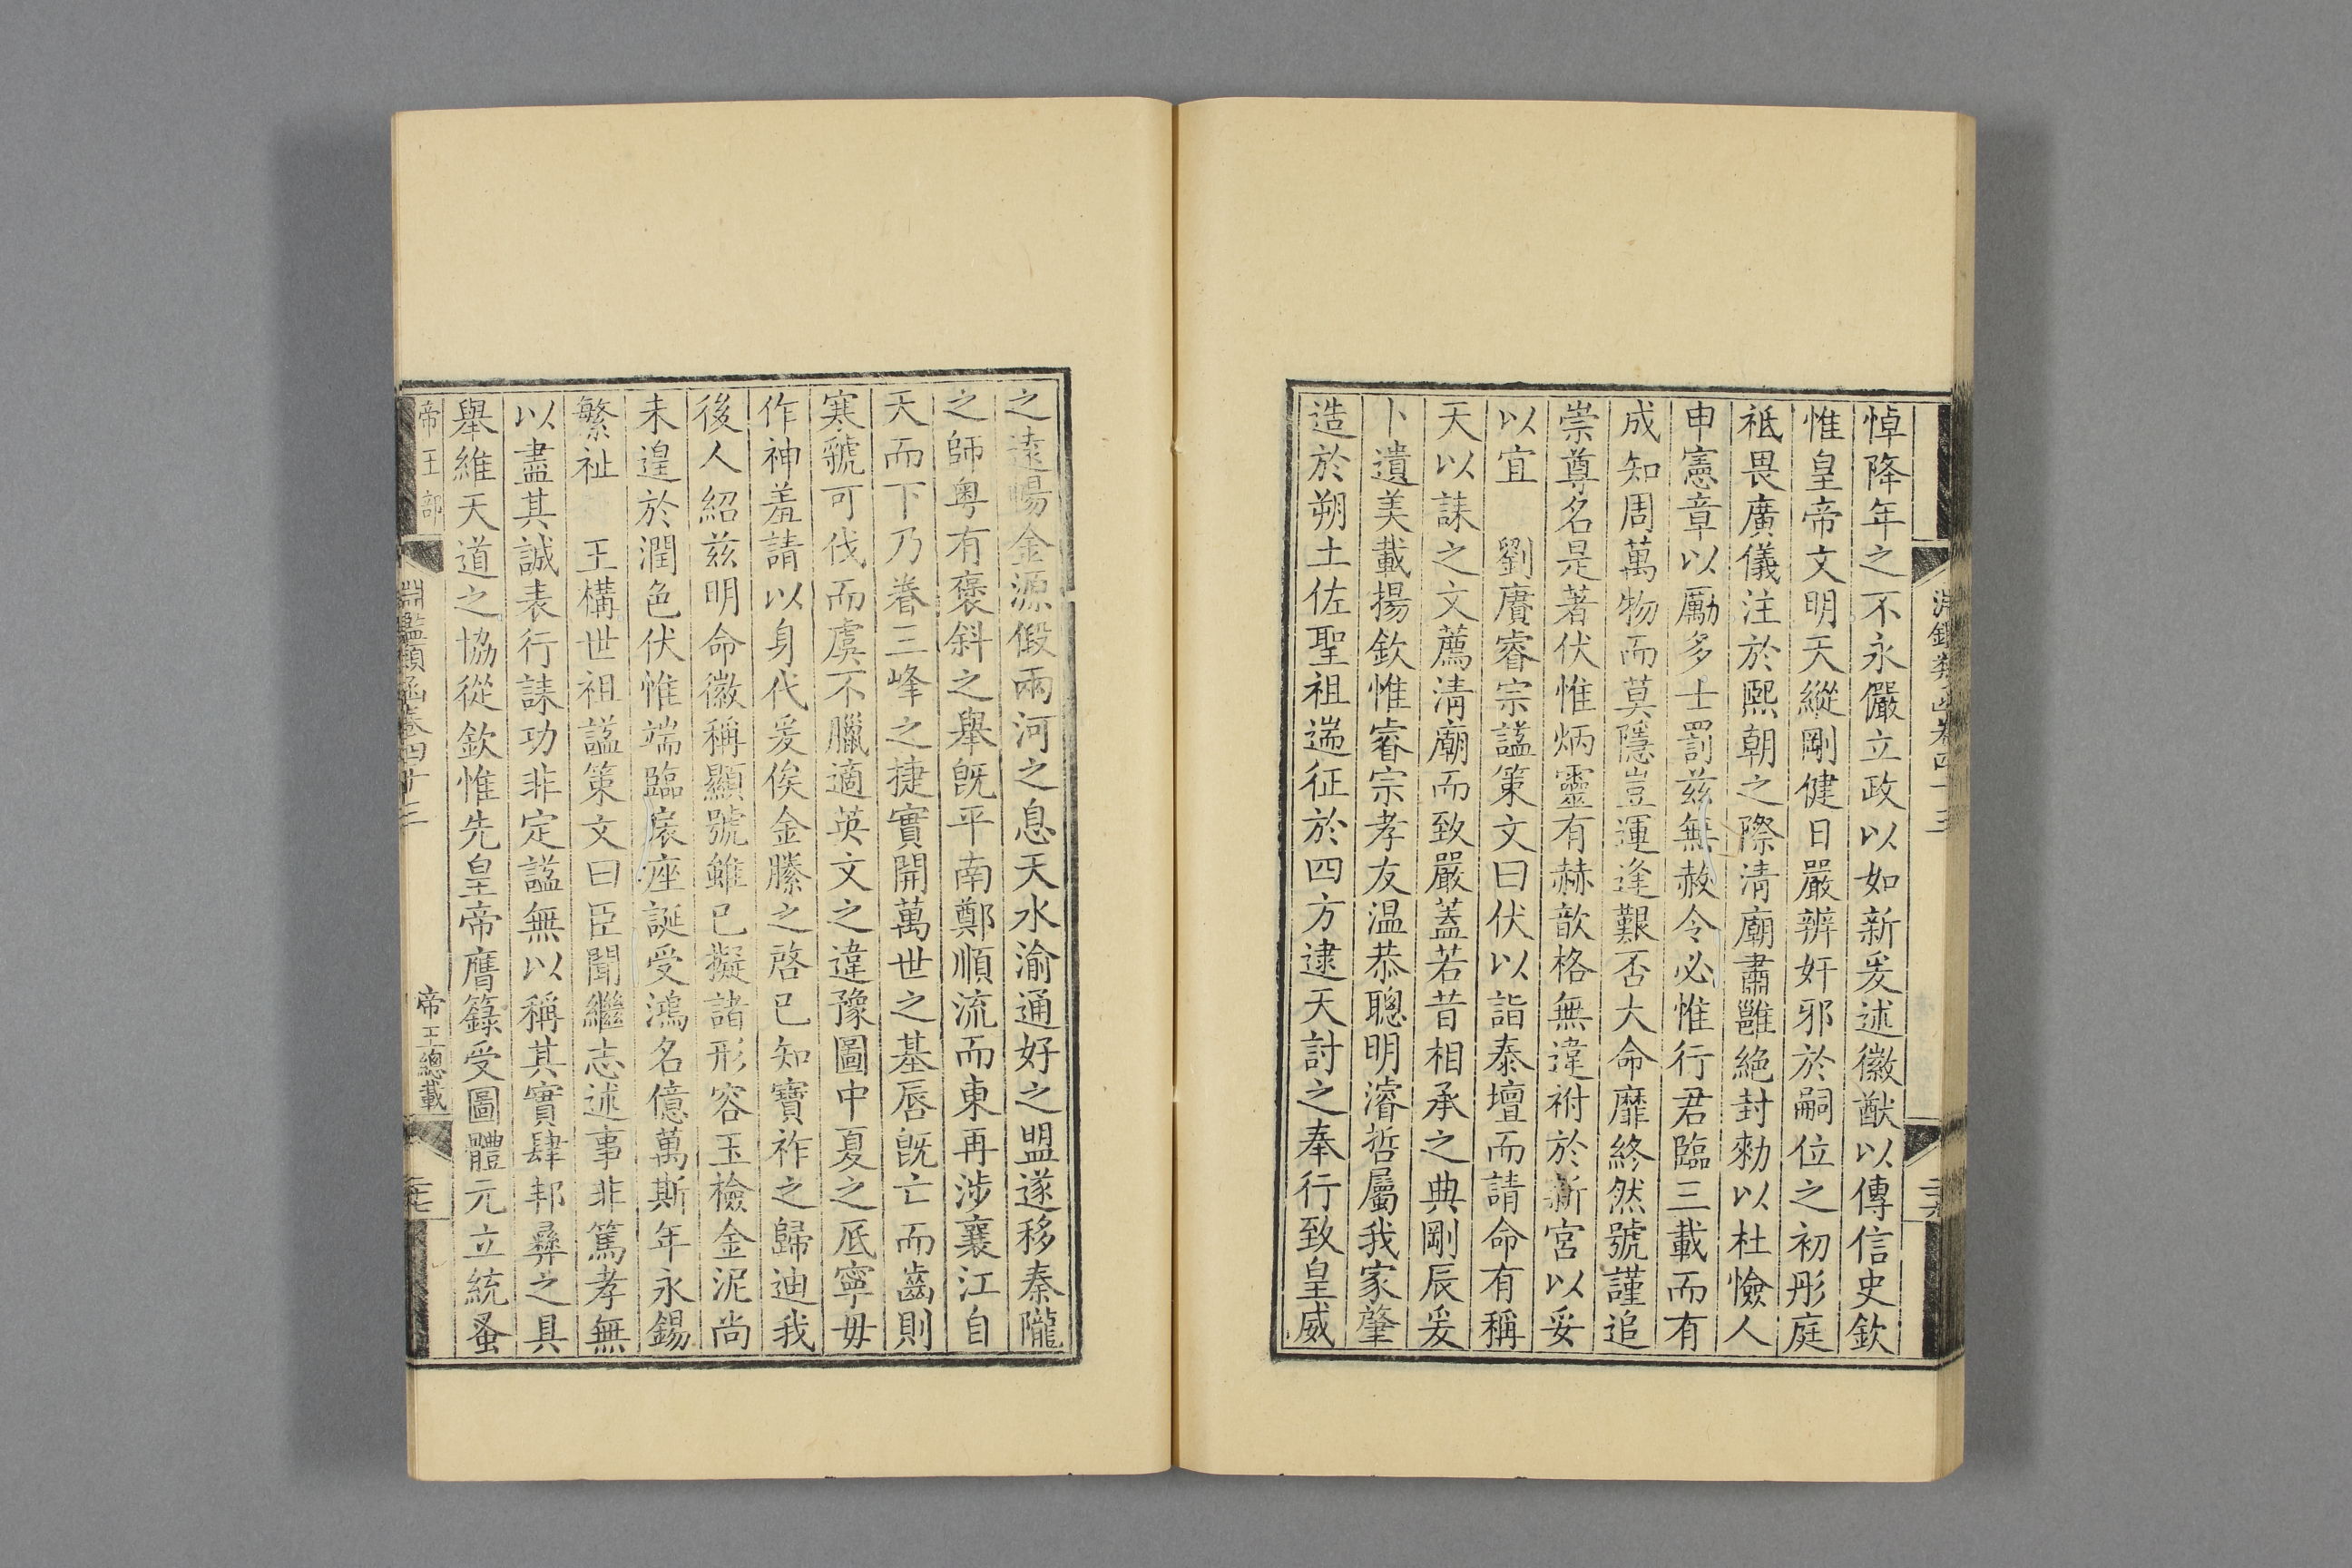 淵鑑類函卷四十三
悼降年之不永儼立政以如新爰述徽猷以傳信史欽
惟皇帝文明天縱剛健日嚴辨奸邪於嗣位之初彤庭
祗畏廣儀注於熙朝之際清廟肅雝絶封勑以杜憸人
申憲章以勵多士罰兹無赦令必惟行君臨三載而有
成知周萬物而莫隱豈運逢艱否大命靡終然號謹追
崇尊名是著伏惟炳靈有赫歆格無違祔於新宮以妥
以宜　劉賡睿宗諡策文曰伏以詣泰壇而請命有稱
天以誄之文薦淸廟而致嚴蓋若昔相承之典剛辰爰
卜遺美載揚欽惟睿宗孝友温恭聰明濬哲屬我家肇
造於朔土佐聖祖遄征於四方逮天討之奉行致皇威
之遠暢金源假兩河之息天水渝通好之盟遂移秦隴
之師粤有褒斜之舉旣平南鄭順流而東再涉襄江自
天而下乃眷三峰之捷實開萬世之基唇旣亡而齒則
寒虢可伐而虞不臘適英文之違豫圖中夏之厎寧毋
作神羞請以身代爰俟金縢之啓已知寶祚之歸迪我
後人紹兹明命徽稱顯號雖已擬諸形容玉檢金泥尚
未遑於潤色伏惟端臨扆座誕受鴻名億萬斯年永錫
繁祉　王構世祖諡策文曰臣聞繼志述事非篤孝無
以盡其誠表行誄功非定諡無以稱其實肆邦彝之具
舉維天道之協從欽惟先皇帝膺籙受圖體元立統蚤
帝王部
淵鑑類函卷四十三
帝王總載
二七